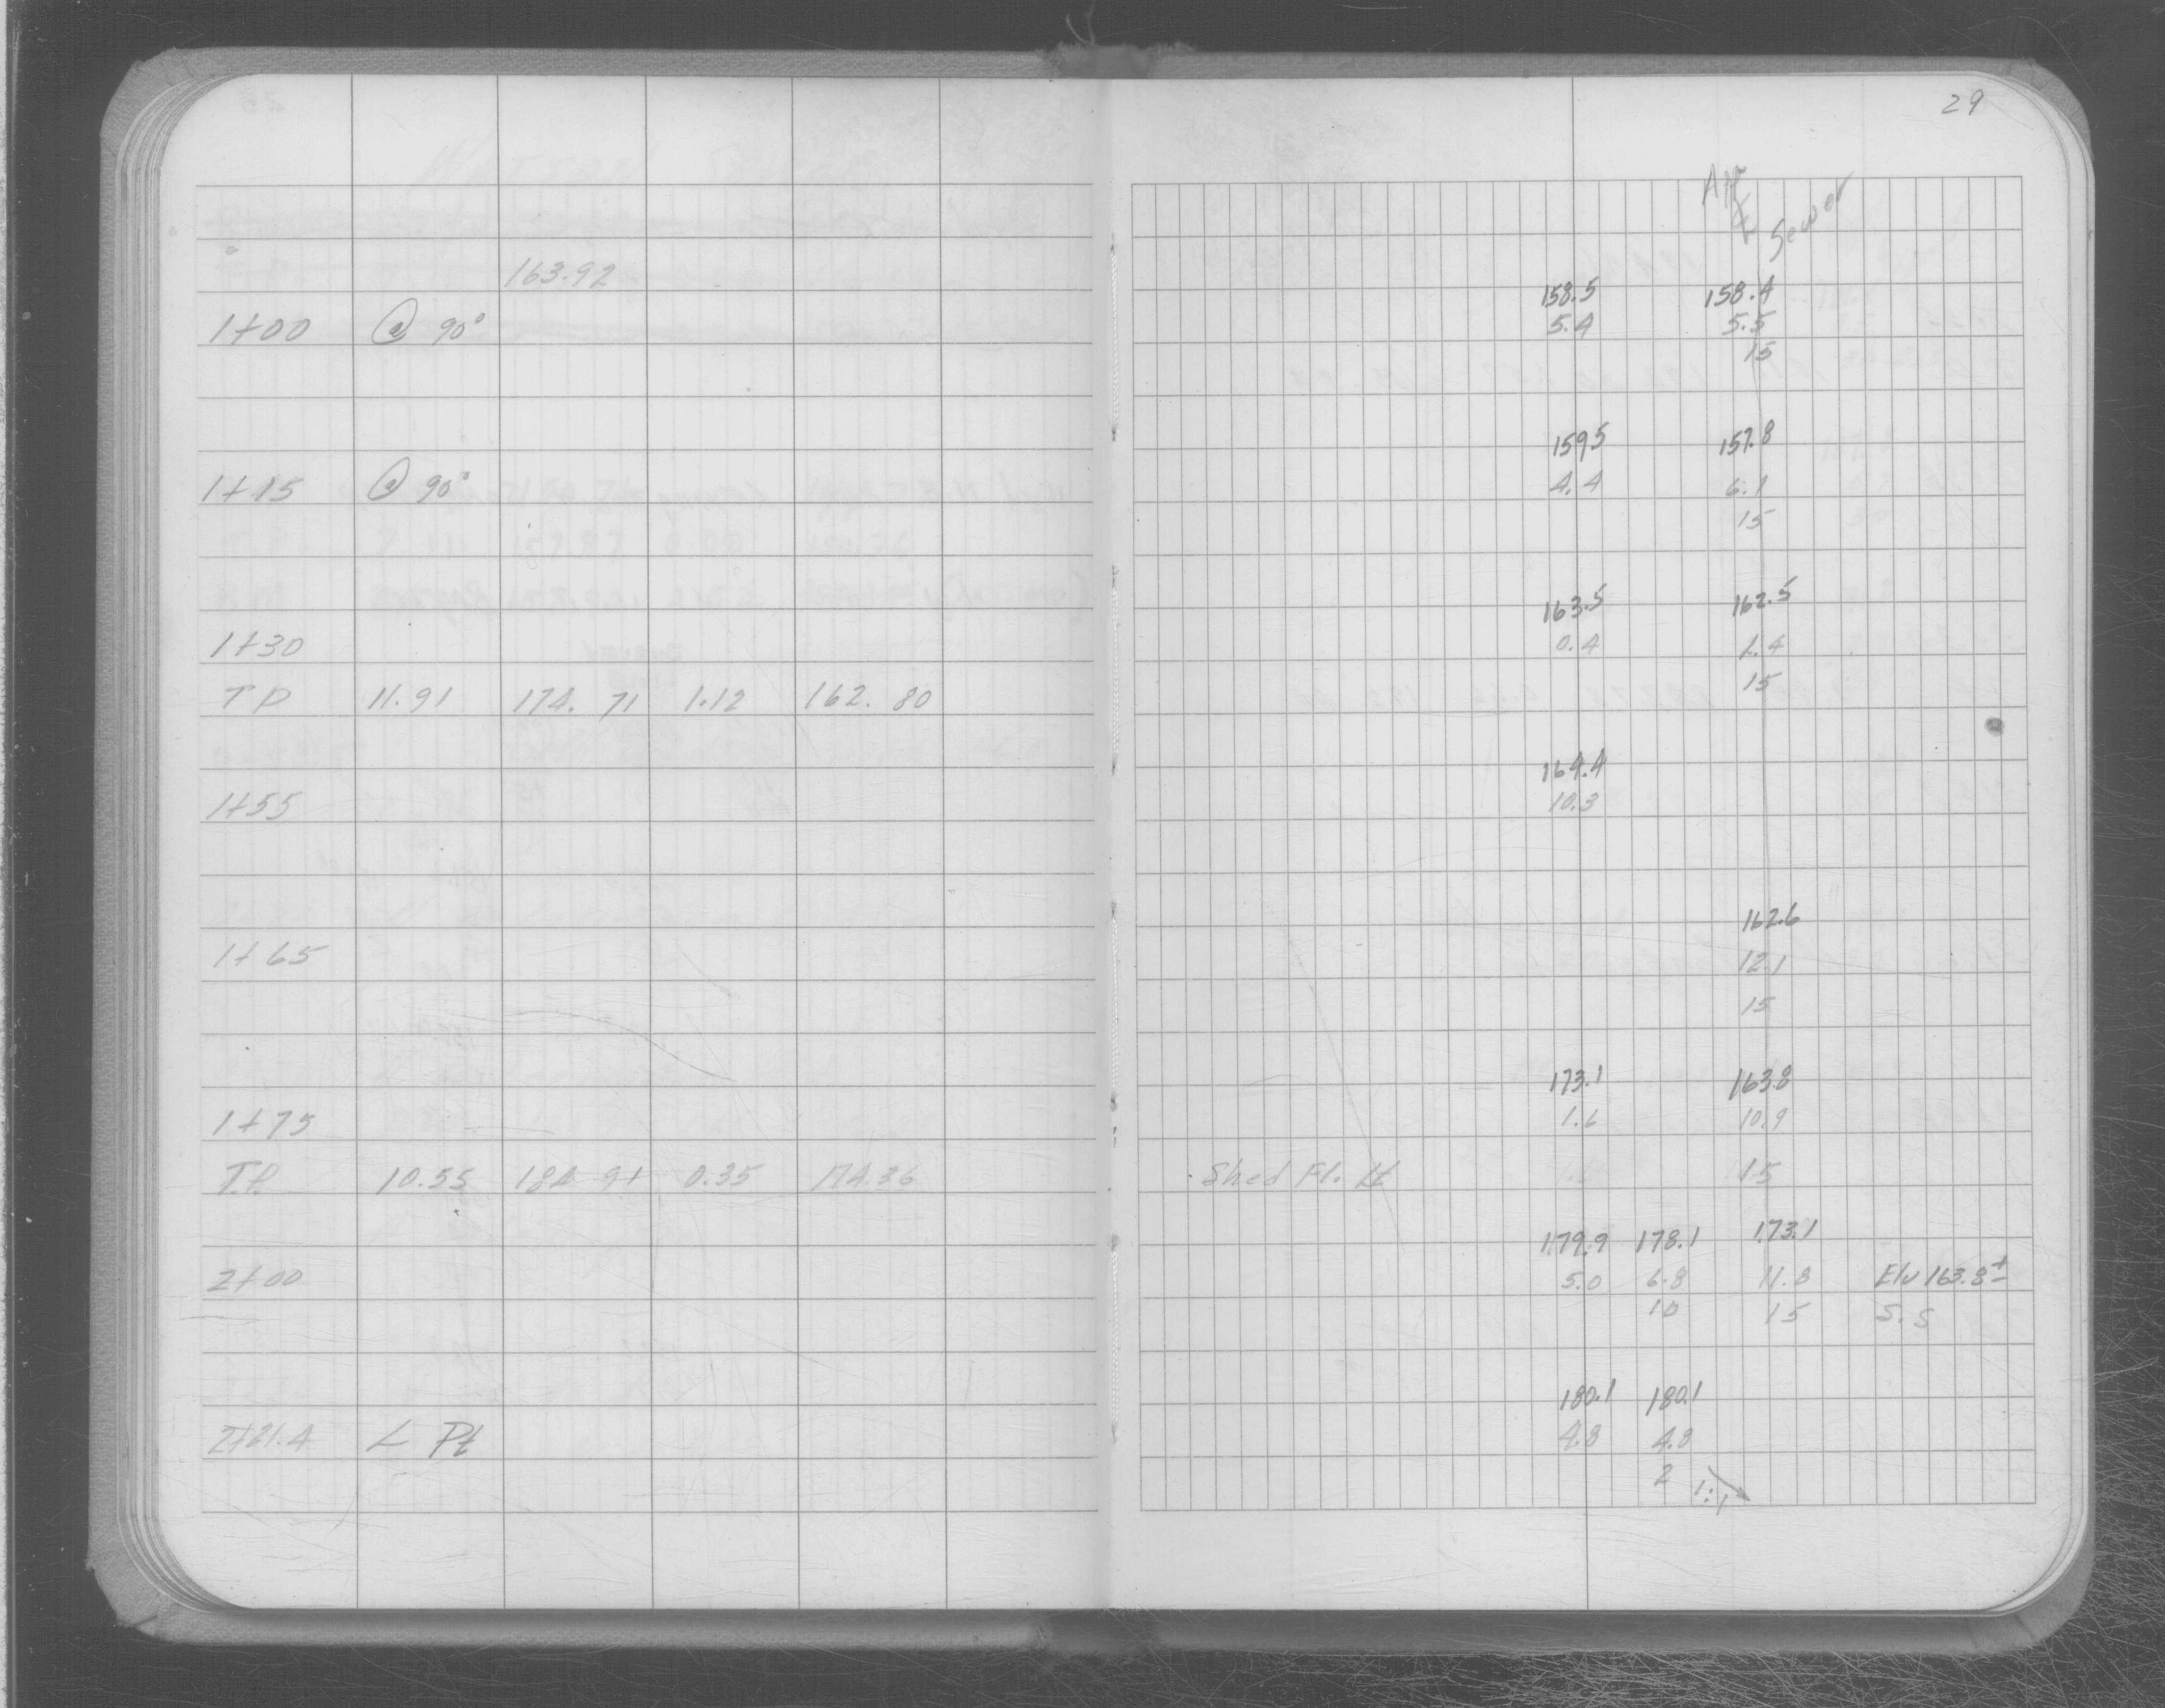 29
App
℄ Sewer
163.92
158.5 158.4
1+00 @ 90° 5.4 5.5
15
159.5 157.8
1+15 @ 90° 4.4 6.1
15
163.5 162.5
1+30 0.4 1.4
15
T P 11.91 174.71 1.12 162.80
164.4
1+55 10.3
162.6
1+65 12.1
15
173.1 163.8
1+75 1.6 10.9
T.P. 10.55 184.91 0.35 174.36 Shed Fl. Lt 15
179.9 178.1 173.1
2+00 5.0 6.8 11.8 Elv 163.8±
10 15 S.S
180.1 180.1
2+21.4 ∠ Pt 4.8 4.8
2 1:1